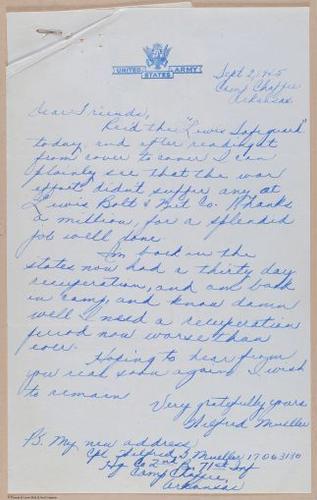 UNITED STATES ARMY
Sept 2, 45
Camp Chaffee
Arkansas
Dear Friends,
Reid the "Lewis Safeguard"
today, and after reading it
from cover to cover I can
plainly see that the war
effort didnt suffer any at
Lewis Bolt & Nut Co. Thanks
a million, for a splendid
job well done.
Im back in the
states now had a thirty day
recuperation, and am back
in camp, and know damn
well I need a recuperation
period now worse than
ever.
Hoping to hear from
you real soon again. I wish
to remain
Very gratefully yours
Wilfred Mueller
PS. My new address
Cpl Wilfred J Mueller 17063180
Hq Co 2nd Bn 71st Inf
Camp Chaffee
Arkansas